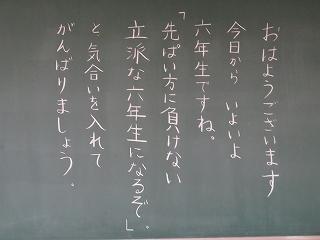 おはようございます
今日から いよいよ
六年生ですね。
「先ぱい方に負けない
立派な六年生になるぞ」。
と気合いを入れて
がんばりましょう。